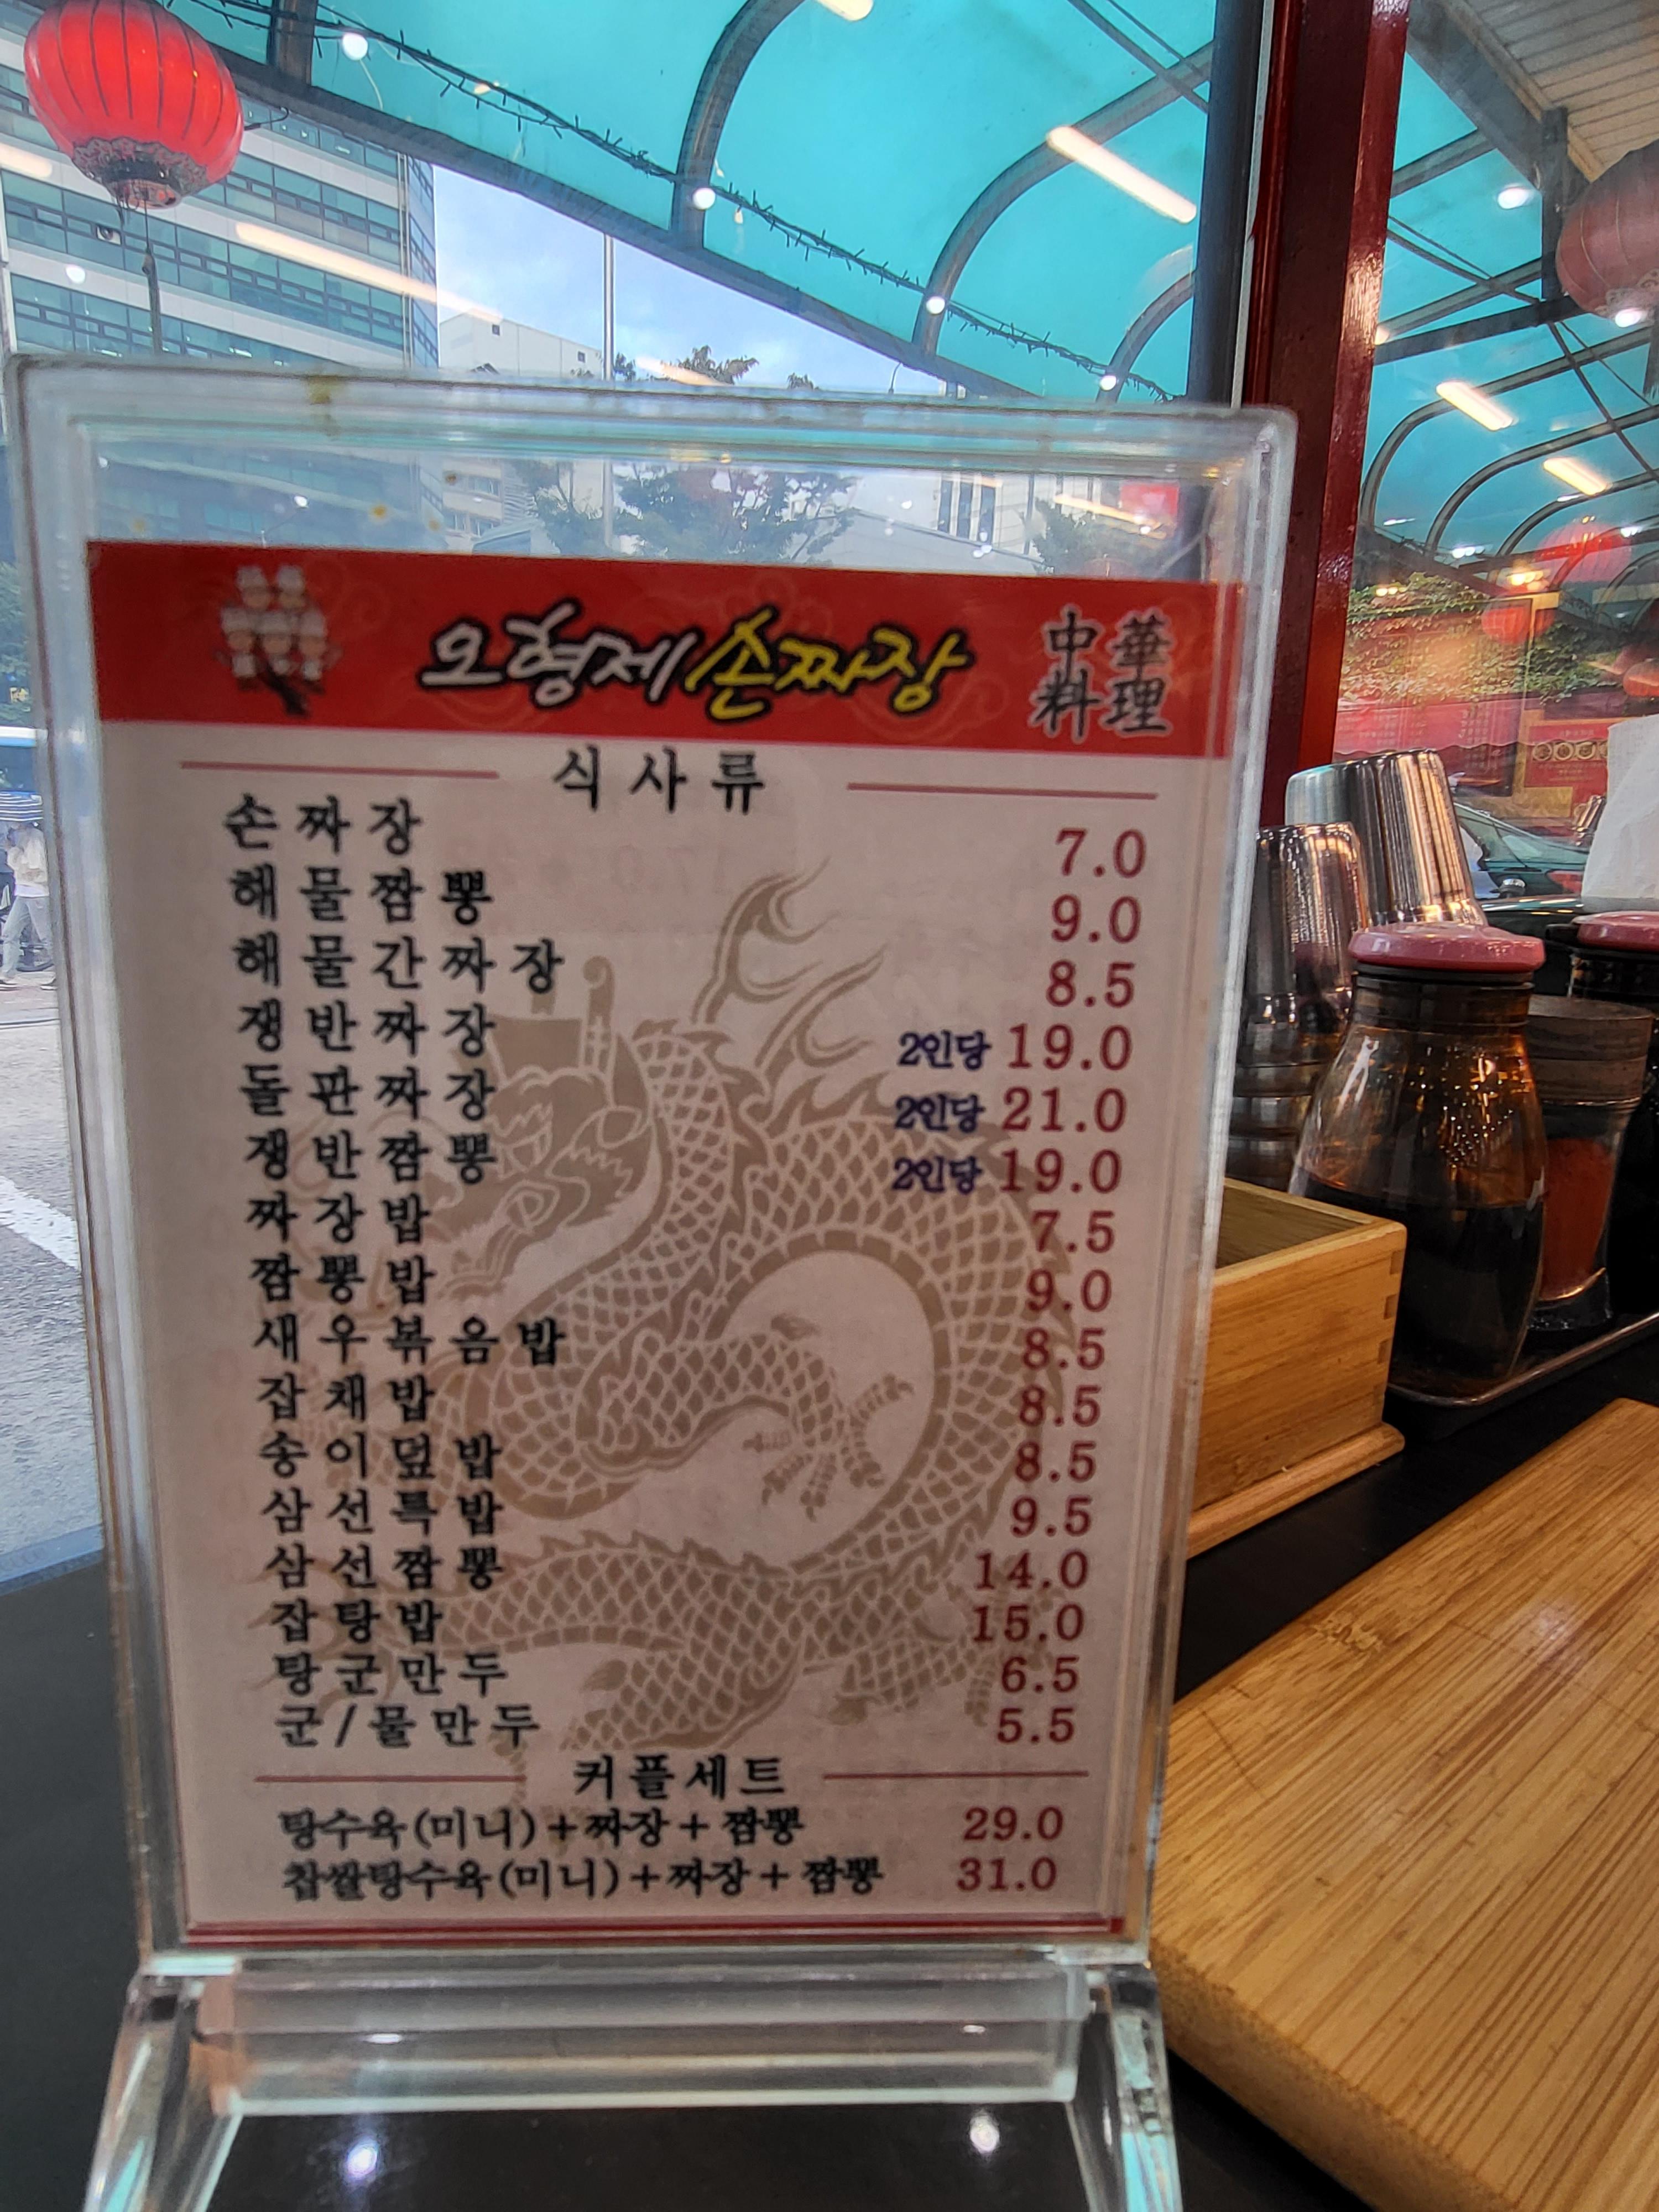 오형제손짜장 中華料理
식사류
손짜장 7.0
해물짬뽕 9.0
해물간짜장 8.5
쟁반짜장 2인당 19.0
돌판짜장 2인당 21.0
쟁반짬뽕 2인당 19.0
짜장밥 7.5
짬뽕밥 9.0
새우볶음밥 8.5
잡채밥 8.5
송이덮밥 8.5
삼선특밥 9.5
삼선짬뽕 14.0
잡탕밥 15.0
탕군만두 6.5
군/물만두 5.5
커플세트
탕수육(미니)+짜장+짬뽕 29.0
찹쌀탕수육(미니)+짜장+짬뽕 31.0